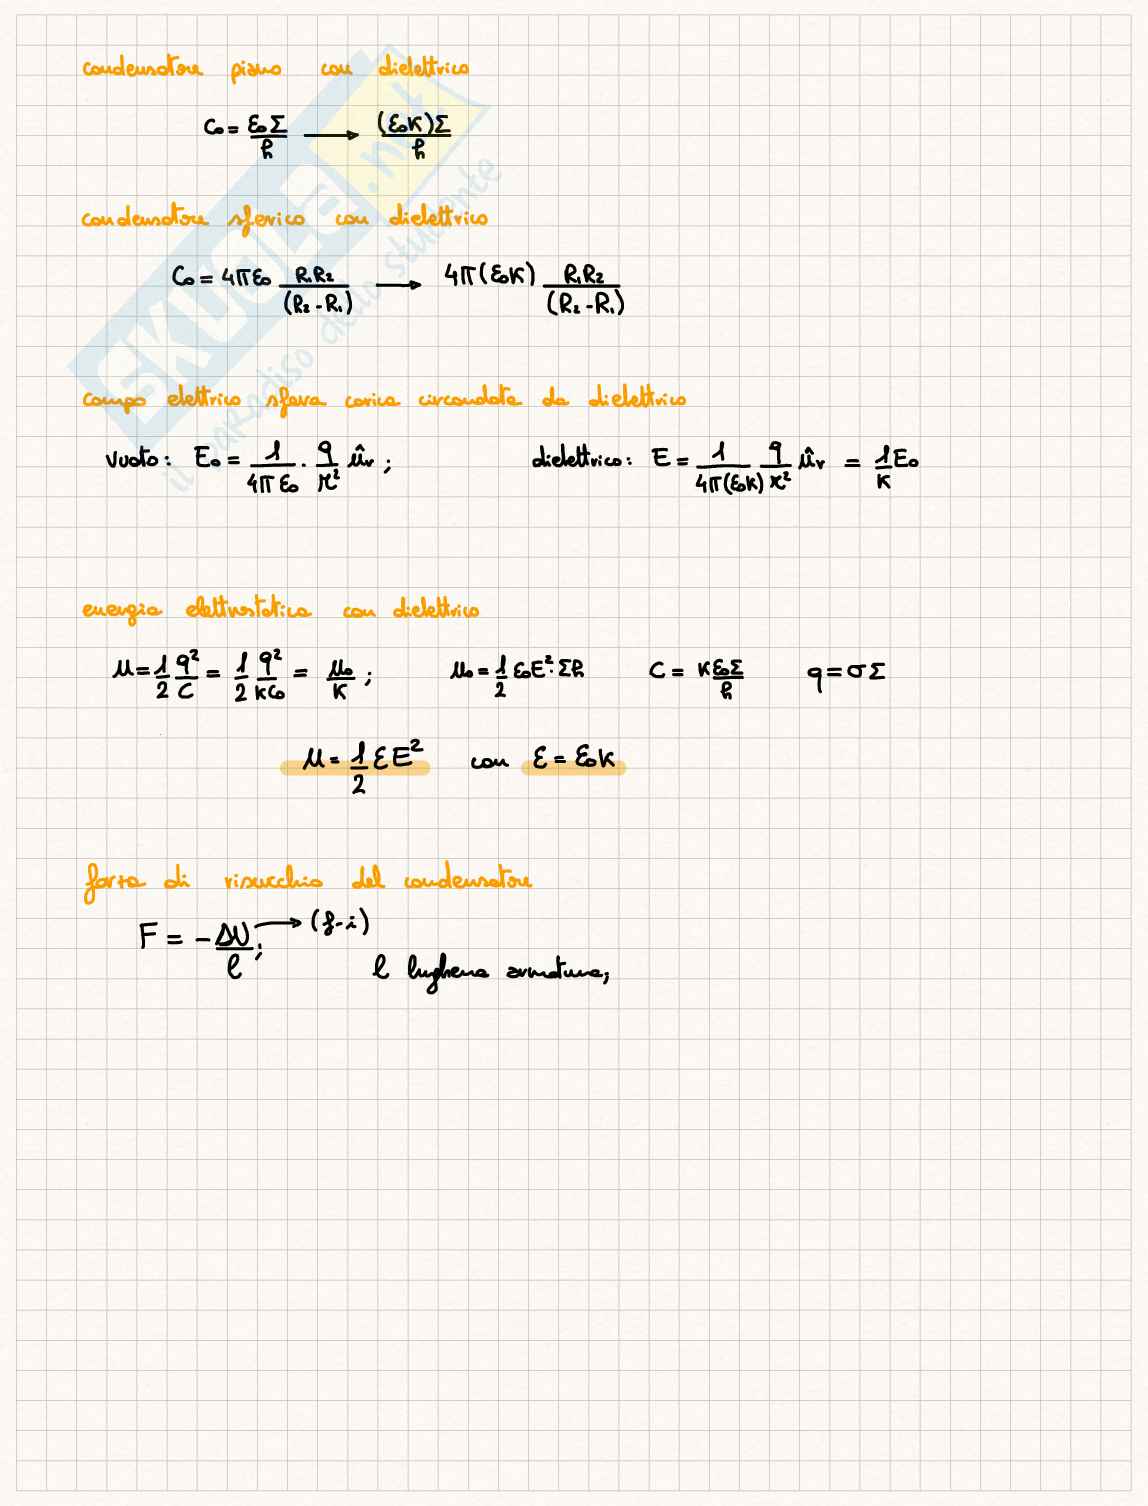 condensatore piano con dielettrico
C₀ = ε₀Σ/h → (ε₀κ)Σ/h
condensatore sferico con dielettrico
C₀ = 4πε₀ R₁R₂/(R₂-R₁) → 4π(ε₀κ) R₁R₂/(R₂-R₁)
campo elettrico sfera carica circondata da dielettrico
vuoto: E₀ = 1/4πε₀ · q/r² ûr ; dielettrico: E = 1/4π(ε₀κ) q/r² ûr = 1/κ E₀
energia elettrostatica con dielettrico
u = 1/2 q²/C = 1/2 q²/κC₀ = u₀/κ ; u₀ = 1/2 ε₀E²·Σh C = κ ε₀Σ/h q = σΣ
u = 1/2 εE² con ε = ε₀κ
forza di risucchio del condensatore
F = - ΔU/ℓ ; → (f-i)
ℓ lughezza armatura;
SKUOLA.net
il paradiso dello studente